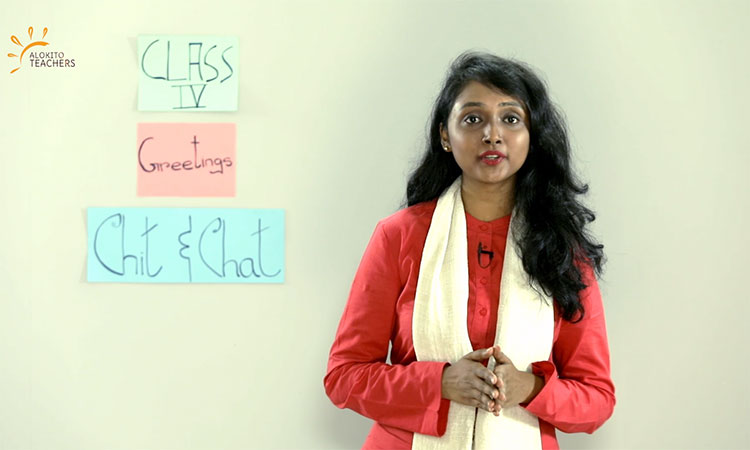 ALOKITO
TEACHERS
CLASS
IV
Greetings
Chit & Chat